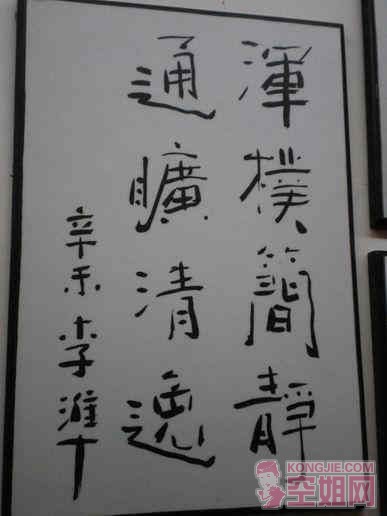 渾樸簡靜
通曠清逸
辛未李準
KONGJIE.COM
空姐网